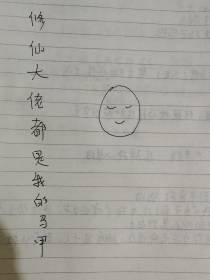 修仙大佬都是我的马甲